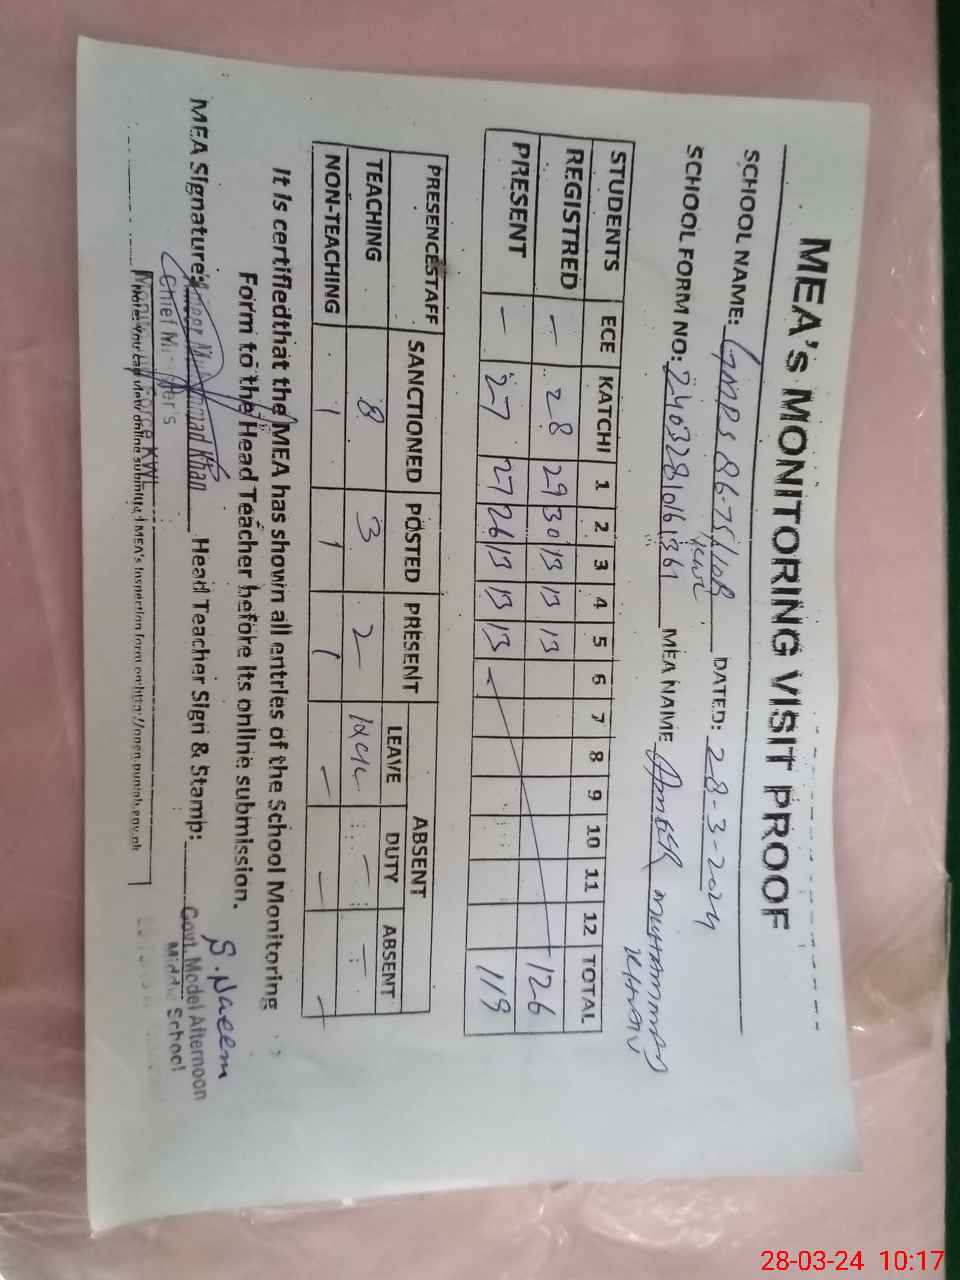 MEA's MONITORING VISIT PROOF
SCHOOL NAME: GMPS 86-75/10R KWL DATED: 28-3-2024
SCHOOL FORM NO: 2403281016361 MEA NAME AMEER MUHAMMAD KHAN
STUDENTS ECE KATCHI 1 2 3 4 5 6 7 8 9 10 11 12 TOTAL
REGISTRED – 28 29 30 13 13 13 126
PRESENT – 27 27 26 13 13 13 119
PRESENCESTAFF SANCTIONED POSTED PRESENT ABSENT
LEAVE DUTY ABSENT
TEACHING 8 3 2 – –
NON-TEACHING 1 1 1 – – –
It is certifiedthat the MEA has shown all entries of the School Monitoring
Form to the Head Teacher before its online submission.
MEA Signature: Ameer Muhammad Khan Head Teacher Sign & Stamp: S. Naeem
Chief Minister's
Monitoring Force KWL
Govt. Model Afternoon
Middle School
you can view online submitted MEA's Inspection form on:http://open.punjab.gov.pk
28-03-24 10:17